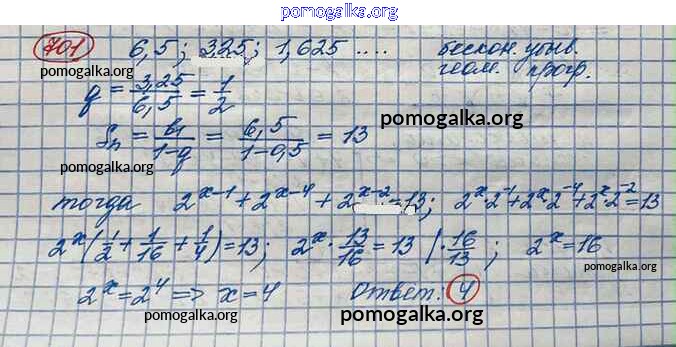 pomogalka.org
701 6,5; 3,25; 1,625 .... бескон. убыв.
геом. прогр.
pomogalka.org
q = 3,25/6,5 = 1/2
pomogalka.org
Sn = b1/(1-q) = 6,5/(1-0,5) = 13
pomogalka.org
тогда 2^(x-1) + 2^(x-4) + 2^(x-2) = 13; 2^x·2^(-1) + 2^x·2^(-4) + 2^x·2^(-2) = 13
2^x(1/2 + 1/16 + 1/4) = 13; 2^x · 13/16 = 13 |· 16/13; 2^x = 16
pomogalka.org
2^x = 2^4 => x = 4 Ответ: 4
pomogalka.org pomogalka.org